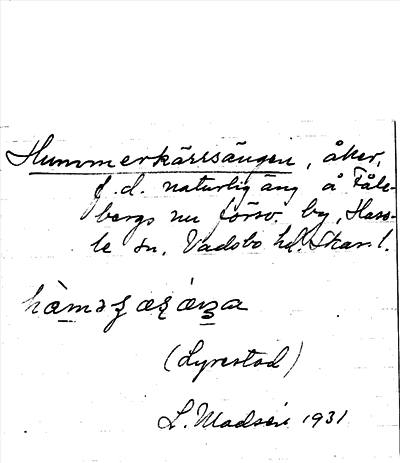 Hummerkärrsängen, åker,
f.d. naturlig äng å Fåle-
bergs nu försv. by, Hass-
le sn, Vadsbo hd. Skar. l.
(Lyrestad)
L. Madsén 1931